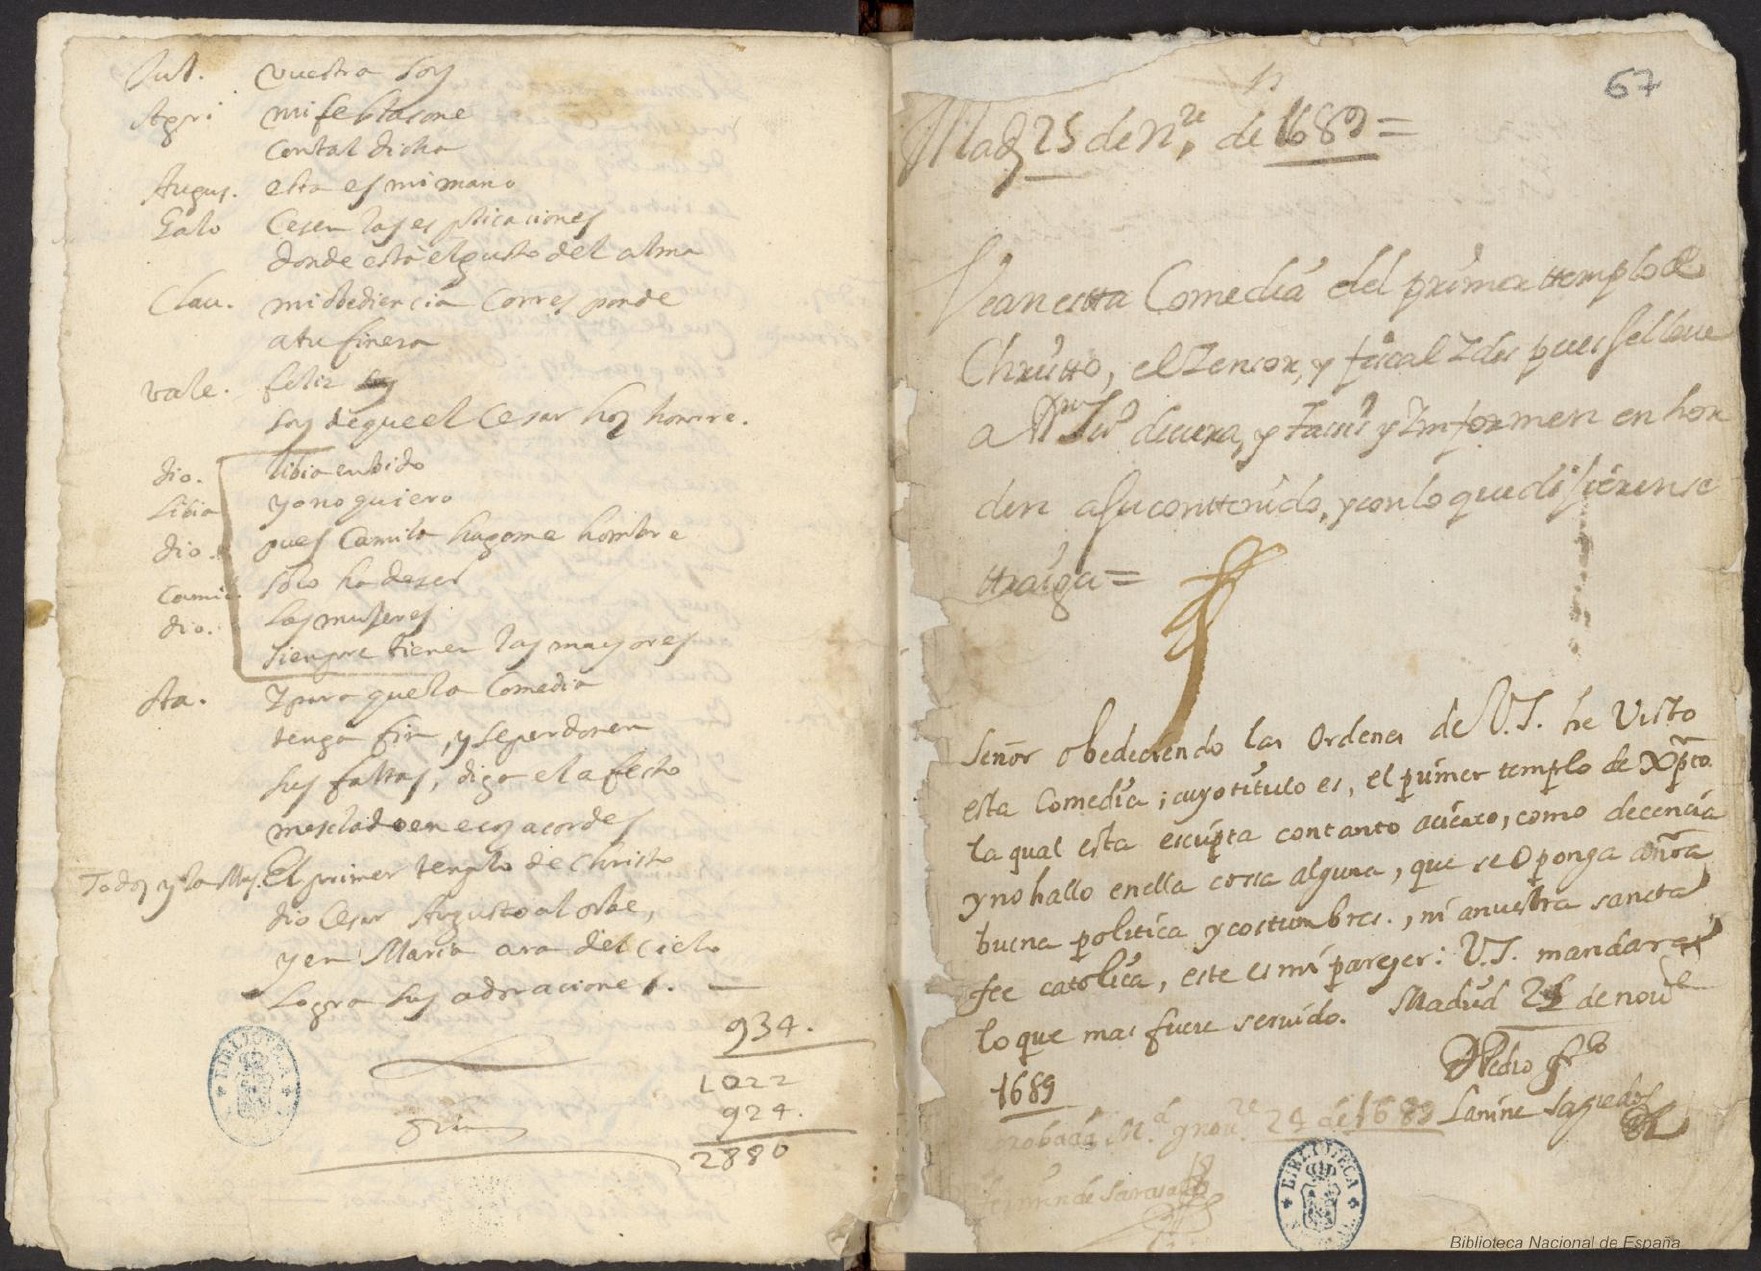 Jul. vuestra soy
Agri mi fe blasone
con tal dicha
Augus. esta es mi mano
Galo Cesen las esplicaciones
donde està el gusto del alma
Clau. mi obediencia corresponde
a tu finesa
Vale. felis
soy de que el Cesar hoy honrre.
dio. libia embido
Libia yo no quiero
dio. pues Camilo hagome hombre
Camil. solo ha de ser
dio. las mujeres
siempre tienen las mayores
Sta. Y para que la Comedia
tenga fin, y se perdonen
sus faltas, diga el afecto
mesclado en ecos acordes
Todos y la Mus. El primer templo de Christo
dio Cesar Augusto al orbe,
y en Maria ara del cielo
logra sus adoraciones. —
934.
1022
924.
2880
Fin
67
Mad 25 de Nre, de 1689 =
Vean esta Comedia del primer ttemplo de
Christto, el Zensor, y fiscal Y des pues se lleue
a
y Ynformen en hor
den a su conttenido, y con lo que dijeren se
ttraiga =
Señor obedeciendo las Ordenes de V.S. he Visto
esta Comedia; cuyo titulo es, el primer templo de Xpto.
la qual esta escripta con tanto acierto, como decencia
y no hallo en ella cossa alguna, que se Oponga a nrâ
buena politica y costumbres., ni a nuestra sancta
fee catolica, este es mi pareçer: V.S. mandara
lo que mas fuere seruido. Madrid de novre
1689
D Pedro frco
Lanine Sagredo
probada M.d y nou.re 24 de 1689
fermin de Sarasa
BIBLIOTECA
BIBLIOTECA
Biblioteca Nacional de España